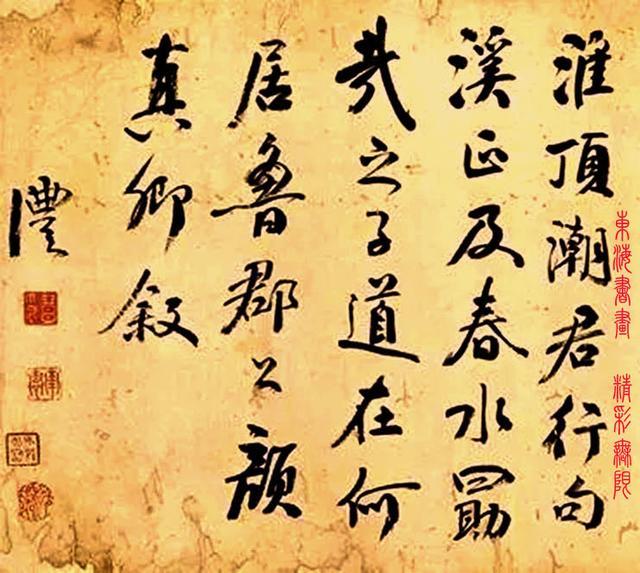 東海書畫 精彩無限
淮頂潮君行句
溪正及春水勗
哉之子道在何
居魯郡公顏
真卿叙
澧